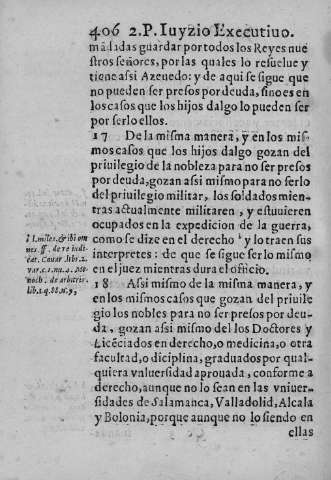 406 2.P. Iuyzio Executiuo.
mãdadas guardar por todos los Reyes nue
stros señores, por las quales lo resuelue y
tiene assi Azeuedo: y de aqui se sigue que
no pueden ser presos por deuda, sino es en
los casos que los hijos dalgo lo pueden ser
por serlo ellos.
17 De la misma manera, y en los mis-
mos casos que los hijos dalgo gozan del
priuilegio de la nobleza para no ser presos
por deuda, gozan assi mismo para no serlo
del priuilegio militar, los soldados mien-
tras actualmente militaren, y estuuieren
ocupados en la expedicion de la guerra,
como se dize en el derecho t y lo traen sus
interpretes: de que se sigue ser lo mismo
en el juez mientras dura el officio.
t l. miles, & ibi om
nes. ff. de re iudi-
cat. Couar. libr. 2.
var. c. 1. nu. 2. Me-
noch. de arbitris.
lib. 2. q. 88. n. 9,
18 Assi mismo de la misma manera, y
en los mismos casos que gozan del priuile
gio los nobles para no ser presos por deu-
da, gozan assi mismo del los Doctores y
Licẽciados en derecho, o medicina, o otra
facultad, o diciplina, graduados por qual-
quiera vniuersidad aprouada, conforme a
derecho, aunque no lo sean en las vniuer-
sidades de Salamanca, Valladolid, Alcala
y Bolonia, porque aunque no lo siendo en
ellas